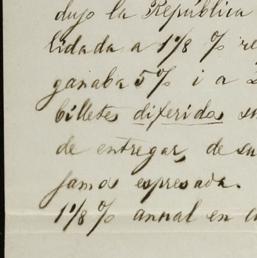 dujo la República
lidada a 1⅞ % re
ganaba 5 % i a
billetes diferidos su
de entregar, de su
famos espresada.
1⅞ % annal en